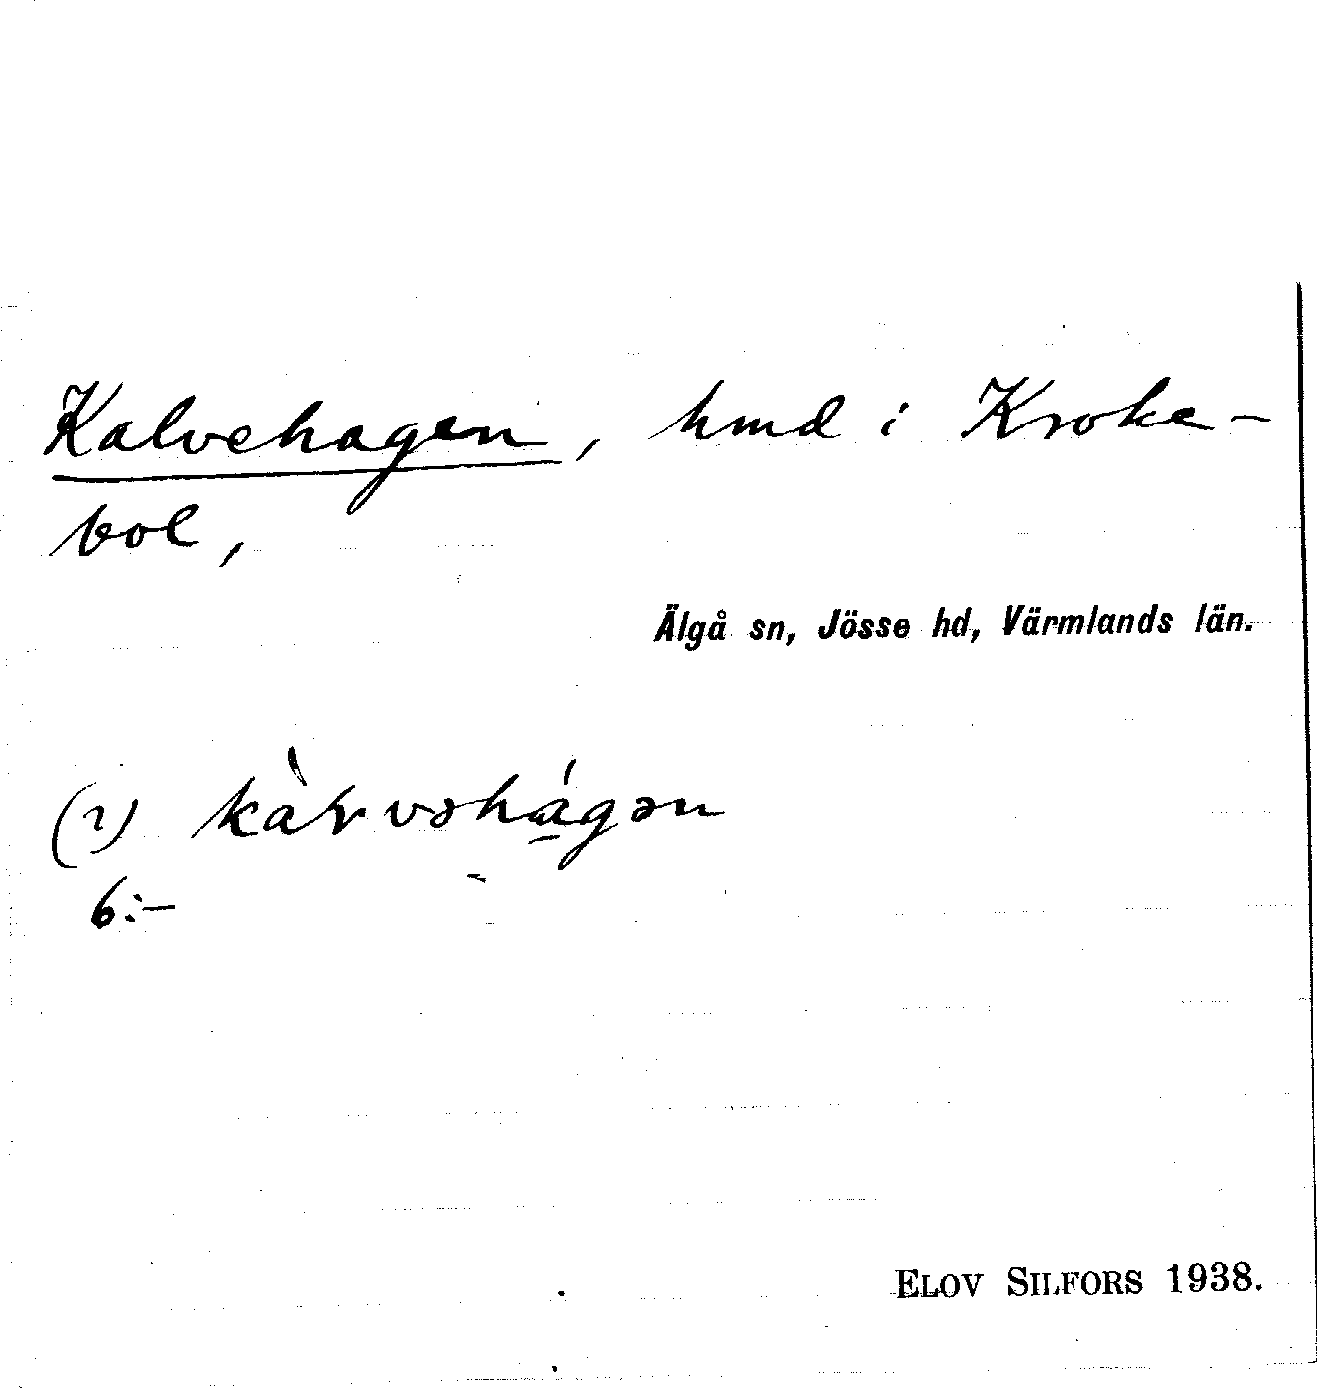 Kalvehagen, hmd i Kroke-
bol,
Älgå sn, Jösse hd, Värmlands län.
(1) kàɽvəhágən
6:-
ELOV SILFORS 1938.